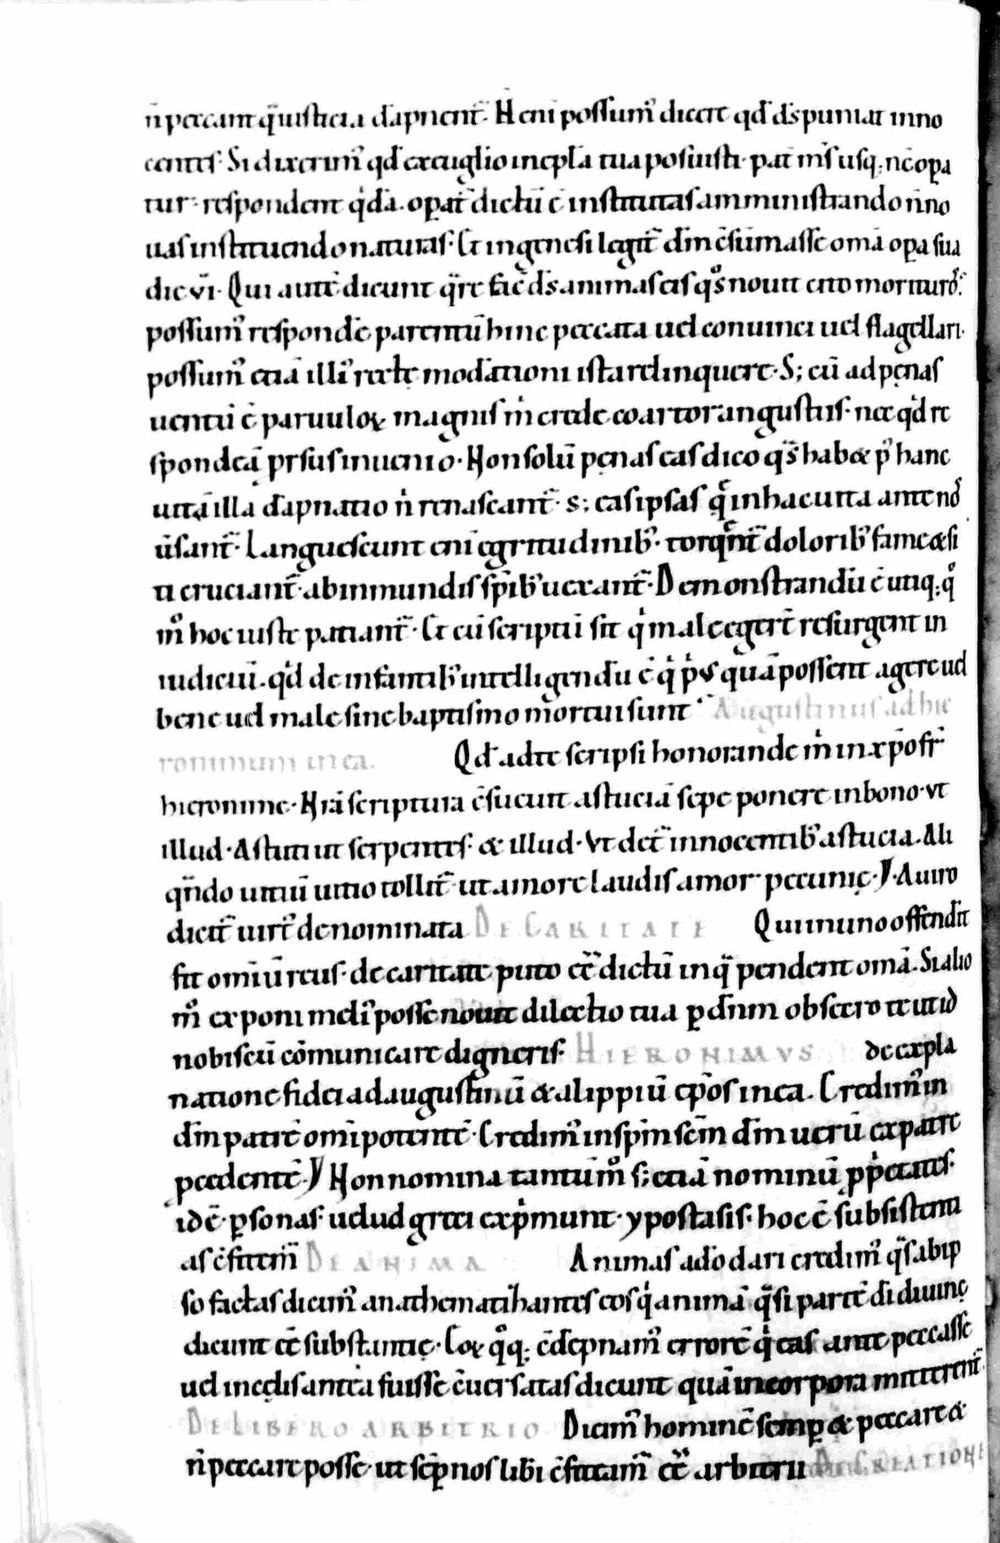 n̄ peccant q̄ iusticia dāpnent᷑. Non possum᷒ dicere qđ d̄s puniat inno
centes. Si dixerim᷒ qđ ex euglio in epl̄a tua posuisti. pat̄ m̄s usq; n̄c opa
tur. respondent q̇dā. opat᷑ dictū ē institutas amministrando n̄ no
uas instituendo naturas. Et in genesi legit᷑ dm̄ c̄sūmasse om̄a opa sua
die vi. Qui aut̄ dicunt q̄re fac̄ d̄s animas eis q͛s nouit cito morituros.
possum᷒ respondē parentū hinc peccata uel conuinci uel flagellari.
possum᷒ etiā illi᷒ recte modationi ista relinquere. S; cū ad pęnas
uentū ē paruuloꝝ magnis m̊ crede coartor angustiis. nec q̇d re
spondeā prsus inuenio. Non solū pęnas eas dico q͛s hab& p᷒ hanc
uitā illa dāpnatio n̄ renascant᷑. s; eas ipsas q̄ in hac uita ante nos
ūsant᷑. Languescunt eni egritudinib᷒. torqnt᷑ dolorib᷒ fame & si
ti cruciant᷑. ab inmundis spīb᷒ uexant᷑. Demonstrandū ē utiq; q͛
m͛ hoc iuste patiant᷑. Et cū scriptū sit q̇ male egert̄ resurgent in
iudiciū. q̇d de infantib᷒ intelligendū ē q̇ p᷒us quā possent agere uel
bene uel male sine baptismo mortui sunt. Augustinus ad hie
ronimum in ea. Qđ ad te scripsi honorande m̊ in xp̄o fr̄
hieronime. Nrā scriptura c̄sueuit astuciā sepe ponere in bono. vt
illud. Astuti ut serpentes. & illud. Vt det᷑ innocentib᷒ astucia. Ali
qn̄do uitiū uitio tollit᷑ ut amore laudis amor pecunię. Y. A uiro
dicit᷑ uirt᷒ denominata DE CARITATE Qui in uno offendit
fit om̄iū reus. de caritate puto eē dictū in q̄ pendent om̄a. Si alio
m͛ exponi meli᷒ posse nouit dilectio tua p dn̄m obsecro te ut id
nobiscū cōmunicare digneris. HIERONIMVS de expla
natione fidei ad augustinū & alippiū ep̄os in ea. Credim᷒ in
dm̄ patrē om̄ipotentē. Credim᷒ in spm̄ scm̄ dm̄ uerū ex patre
pcedentē. Y Non nomina tantūm͛ s; etiā nominū pp̊etates.
id ē. psonas. uel ud greci exp̊munt. ypostasis. hoc ē subsistenti
as c̄fitem᷑ DE ANIMA Animas a dō dari credim᷒ q͛s ab ip
so factas dicim᷒ anathematizantes eos q̇ animā q̄si partē dī diuinę
dicunt eē substantię. Eoꝝ q͛q; c̄dępnam᷒ errorē q̇ eas ante peccasse
uel in cęlis antea fuisse c̄uersatas dicunt quā in corpora mitterent᷑.
DE LIBERO ARBITRIO Dicim᷒ hominē semp & peccare &
n̄ peccare posse. ut semp nos libi c̄fiteam᷑ eē arbitrii DE CREATIONE